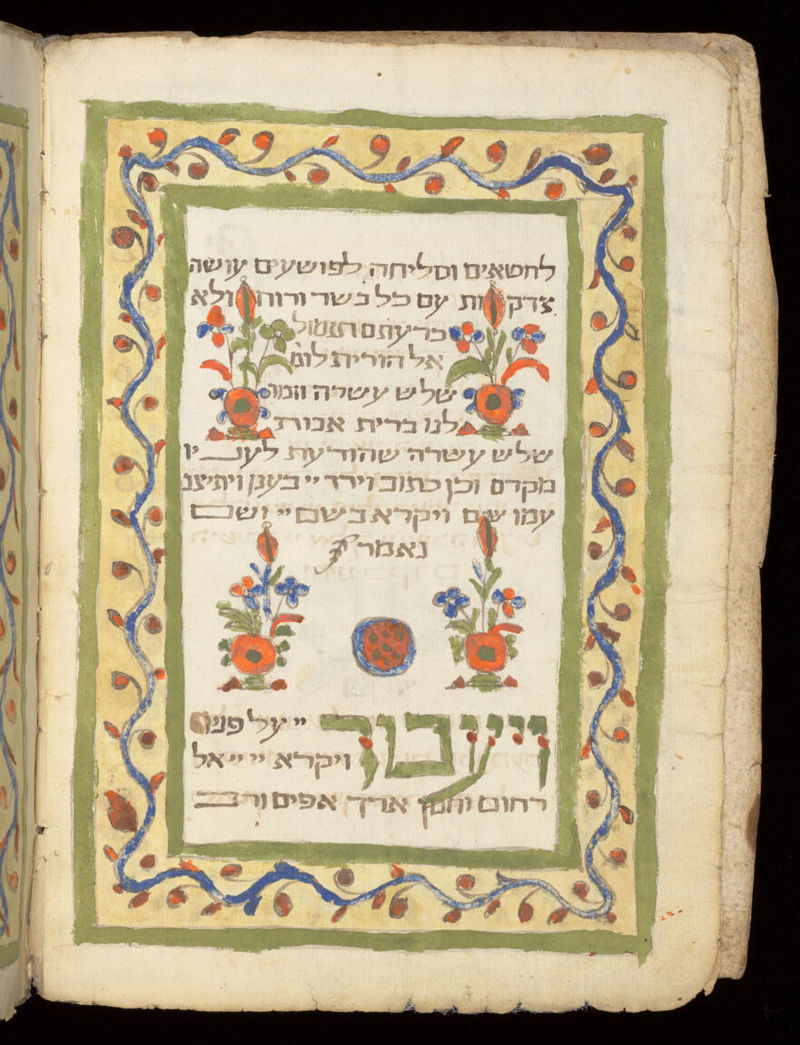 לחטאים וסליחה לפושעים עושה
צדקות עם כל בשר ורוח ולא
כרעתם תגמול
אל הורית לומ
שלש עשרה וזכו
לנו ברית אבות
שלש עשרה שהודעת לענ יו
מקדם וכן כתוב וירד יי בענן ויתיצב
עמו שם ויקרא בשם יי ושם
נאמר
ויעבור יי על פניו
ויקרא יי יי אל
רחום וחנון ארך אפים ורב